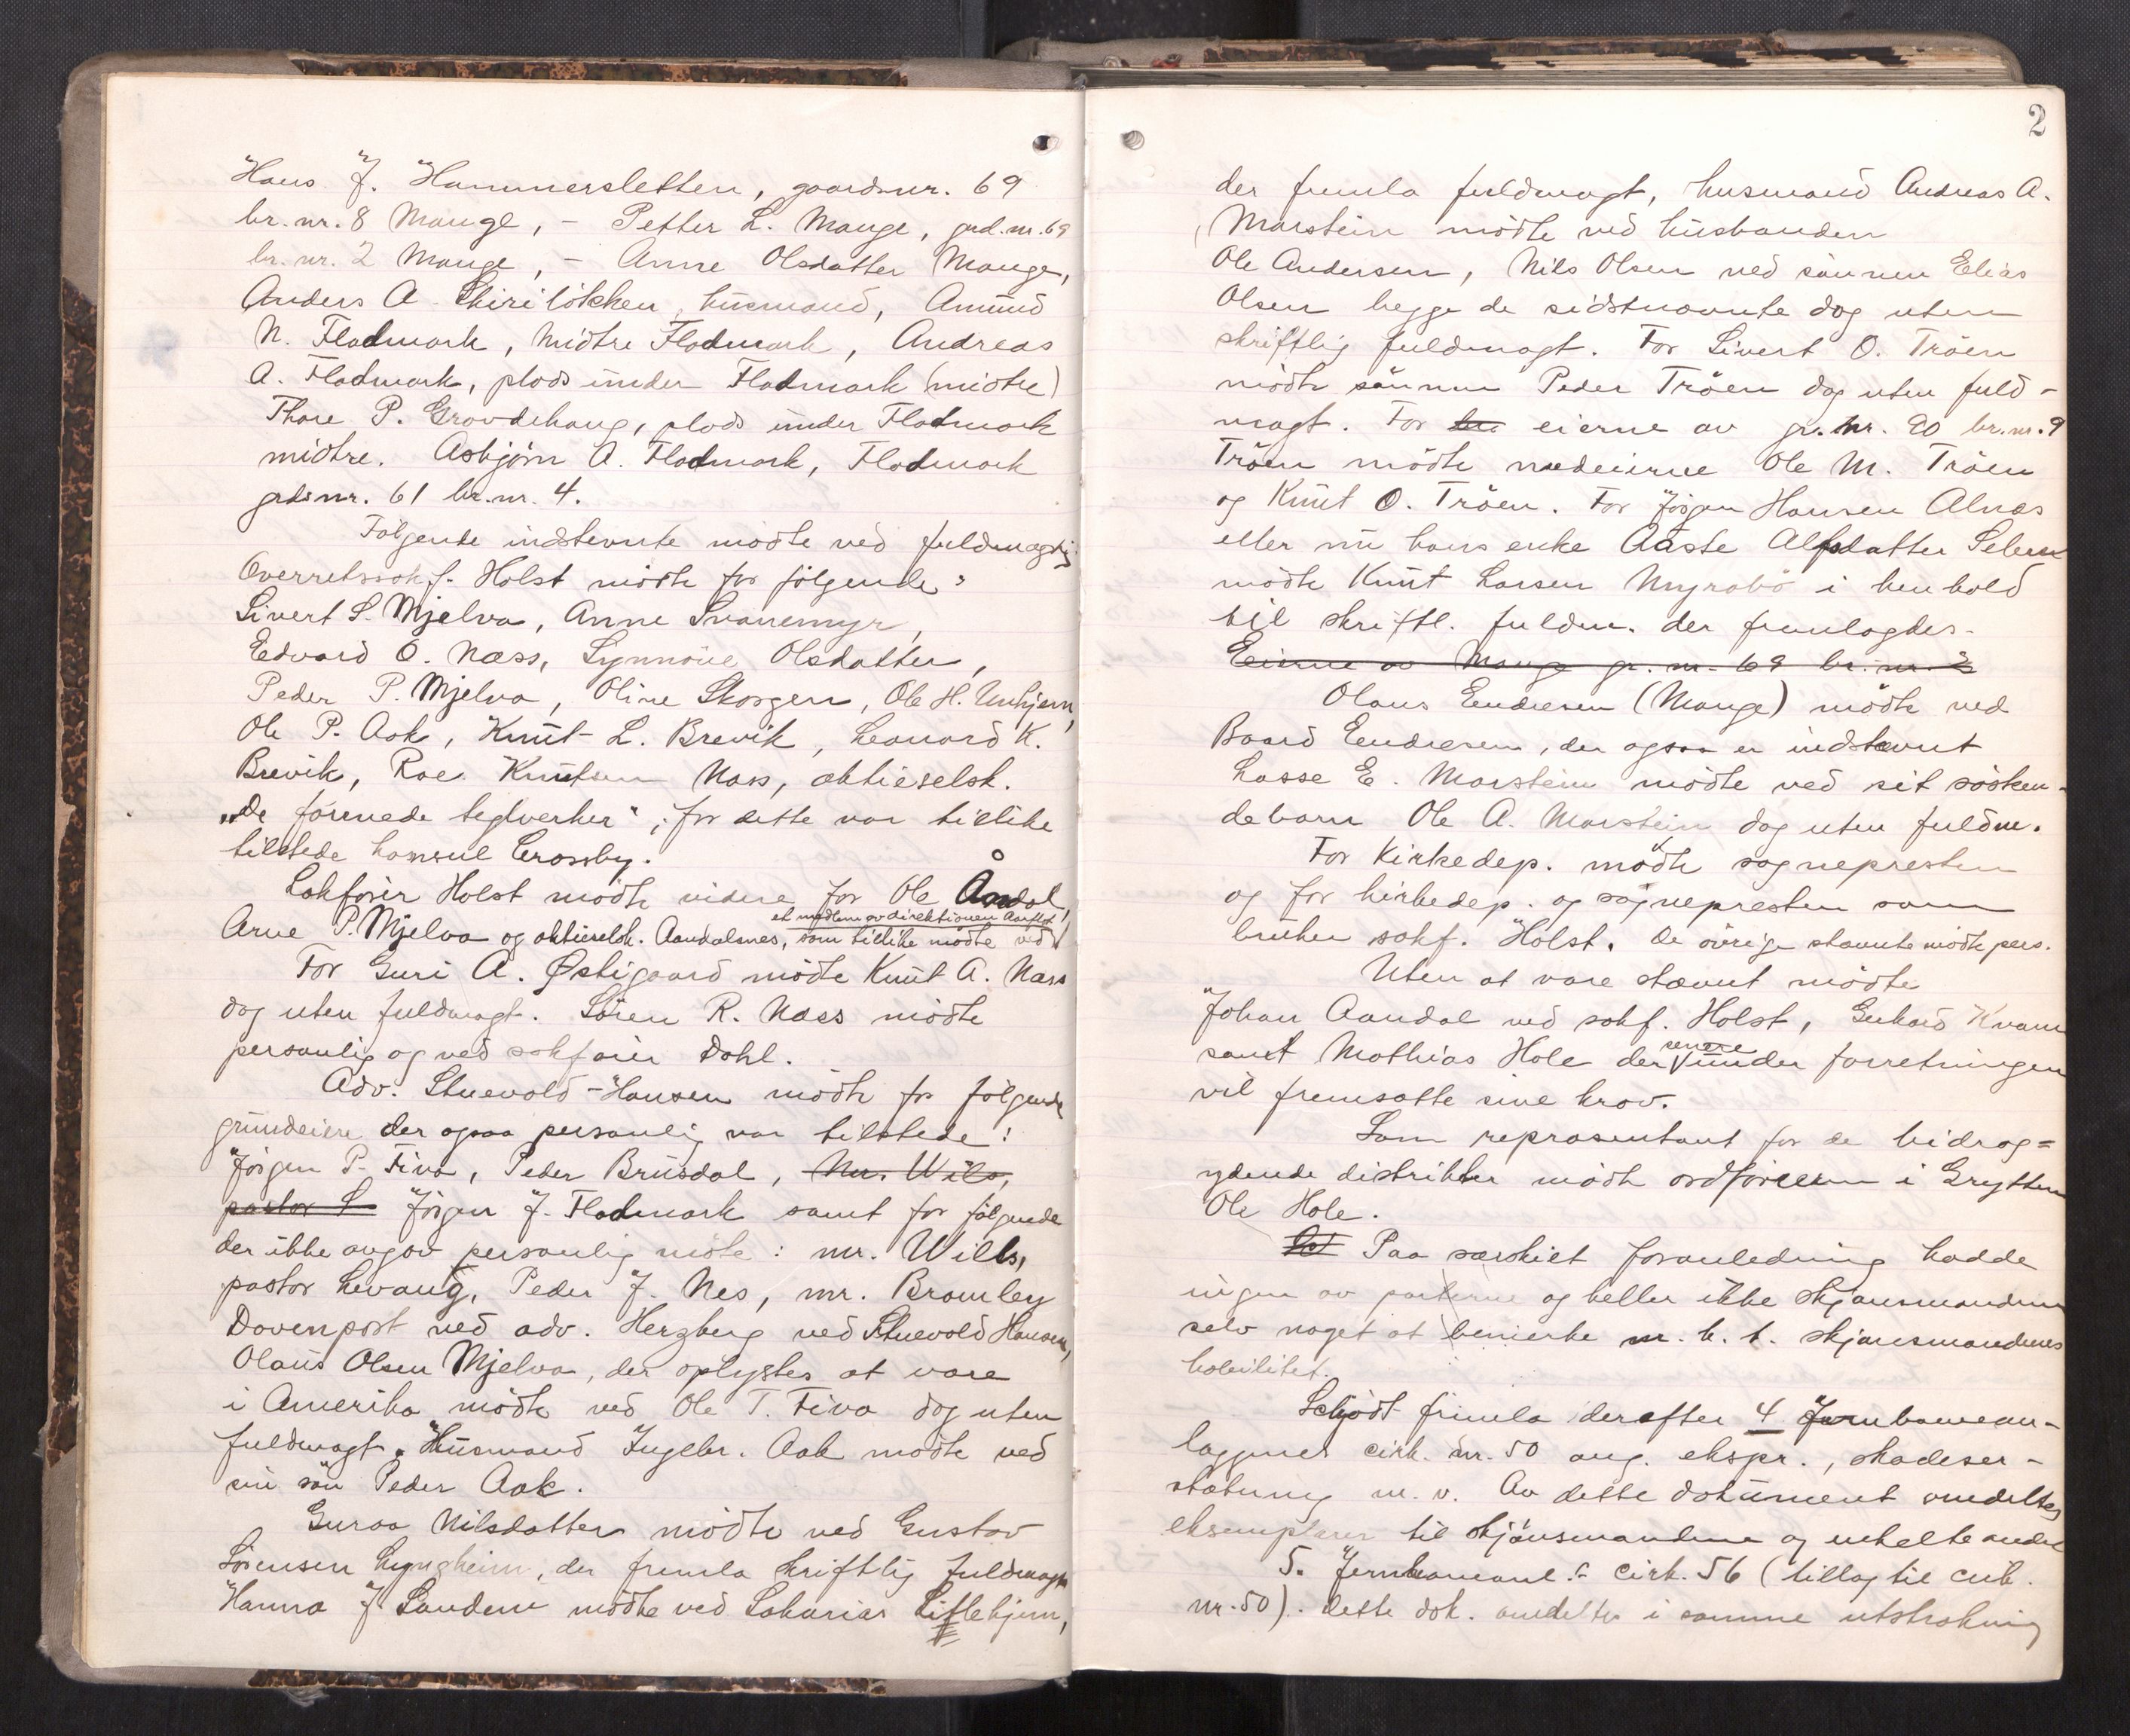 Hans J. Hammersletten, gaardsnr. 69
br. nr. 8 Mange, - Petter L. Mange, grd. nr. 69
br. nr. 2 Mange, - Anne Olsdatter Mange,
Anders A. Skirilökken, husmand, Amund
N. Fladmark, midtre Fladmark, Andreas
A. Fladmark, plads under Fladmark (midtre)
Thore P. Grovdehaug, plads under Fladmark
midtre. Asbjørn A. Fladmark, Fladmark
grdsnr. 61 br. nr. 4.
Følgende indstevnte mödte ved fuldmægtig
Overretssakf. Holst mödte for fölgende:
Sivert S. Mjelva, Anne Svanemyr,
Edvard O. Næss, Synnöve Olsdatter,
Peder P. Mjelva, Oline Skorgen, Ole H. Unhjem,
Ole P. Aak, Knut L. Brevik, Leonard K.
Brevik, Roe Knutsen Næs, aktieselsk.
„De forenede teglverker"; for dette var tillike
tilstede konsul Crossby.
Sakförer Holst mödte videre for Ole Åndal,
et medlem av direktionen Aarflot
Arne P. Mjelva og aktieselsk. Aandalsnes, som tillike mödte ved
For Guri A. Østigaard mödte Knut A. Næss
dog uten fuldmagt. Sören R. Næss mödte
personlig og ved sakförer Dahl.
Adv. Stuevold-Hansen mödte for fölgende
grundeiere der ogsaa personlig var tilstede:
Jörgen P. Fiva, Peder Brüsdal, Mr. Wils,
pastor L Jörgen J. Fladmark samt for fölgende
der ikke avgav personlig möte: mr. Wills,
pastor Levang, Peder J. Nes, mr. Bromley
Davenport ved adv. Herzberg ved Stuevold Hansen,
Olaus Olsen Mjelva, der oplystes at være
i Amerika mödte ved Ole T. Fiva dog uten
fuldmagt. Husmand Ingebr. Aak mödte ved
sin sön Peder Aak.
Guroa Nilsdatter mödte ved Gustav
Sörensen Lyngheim, der fremla skriftlig fuldmagt
Hanna J. Sandem mödte ved Sakarias Liflehjem,
2
der fremla fuldmagt, husmand Andreas A.
Marstein mödte ved husbonden
Ole Andersen, Nils Olsen ved sönnen Elias
Olsen begge de sidstnævnte dog uten
skriftlig fuldmagt. For Sivert O. Tröen
mödte sönnen Peder Tröen dog uten fuld-
magt. For eierne av gr. nr. 90 br. nr. 9
Tröen mödte medeierne Ole M. Tröen
og Knut O. Tröen. For Jörgen Hansen Alnæs
eller nu hans enke Aaste Alfsdatter
mödte Knut Larsen Myrabö i henhold
til skriftl. fuldm. der fremlagdes.
Eierne av Mange gr. nr. 69 br. nr. 2
Olaus Endresen (Mange) mödte ved
Baard Endresen, der ogsaa er indstevnt
Lasse E. Marstein mödte ved sit sösken-
debarn Ole A. Marstein dog uten fuldm.
For Kirkedep. mödte sognepresten
og for kirkedep. og sognepresten som
bruker sakf. Holst. De övrige stevnte mödte pers.
Uten at være stævnt mödte
Johan Aandal ved sakf. Holst, Gerhard Kvam
samt Mathias Hole der senere under forretningen
vil fremsætte sine krav.
Som repræsentant for de bidrag-
ydende distrikter mödte ordföreren i Grytten
Ole Hole.
Paa særskilt foranledning hadde
ingen av parterne og heller ikke skjönsmændene
selv noget at bemerke m. h. t. skjönsmændenes
habilitet.
Schjödt fremla derefter 4 Jernbanean-
læggenes cirk. nr. 50 ang. ekspr., skadeser-
statning m. v. Av dette dokument omdeltes
eksemplarer til skjönsmændene og enkelte andre
5. Jernbaneanl. cirk. 56 (tillæg til cirk.
nr. 50). dette dok. omdeltes i samme utstrækning